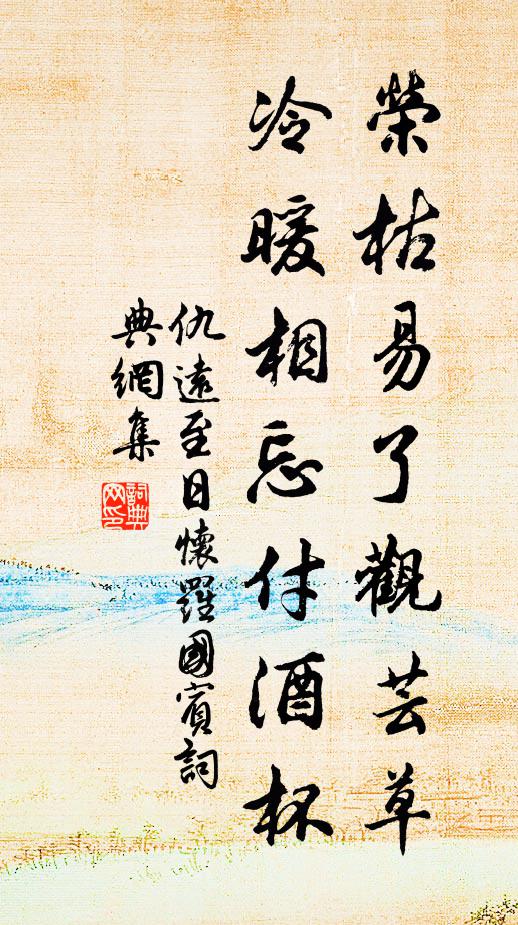 榮枯易了觀芸草
冷暖相忘付酒杯
仇遠至日懷羅國賓詞
典網集
詞典
网印